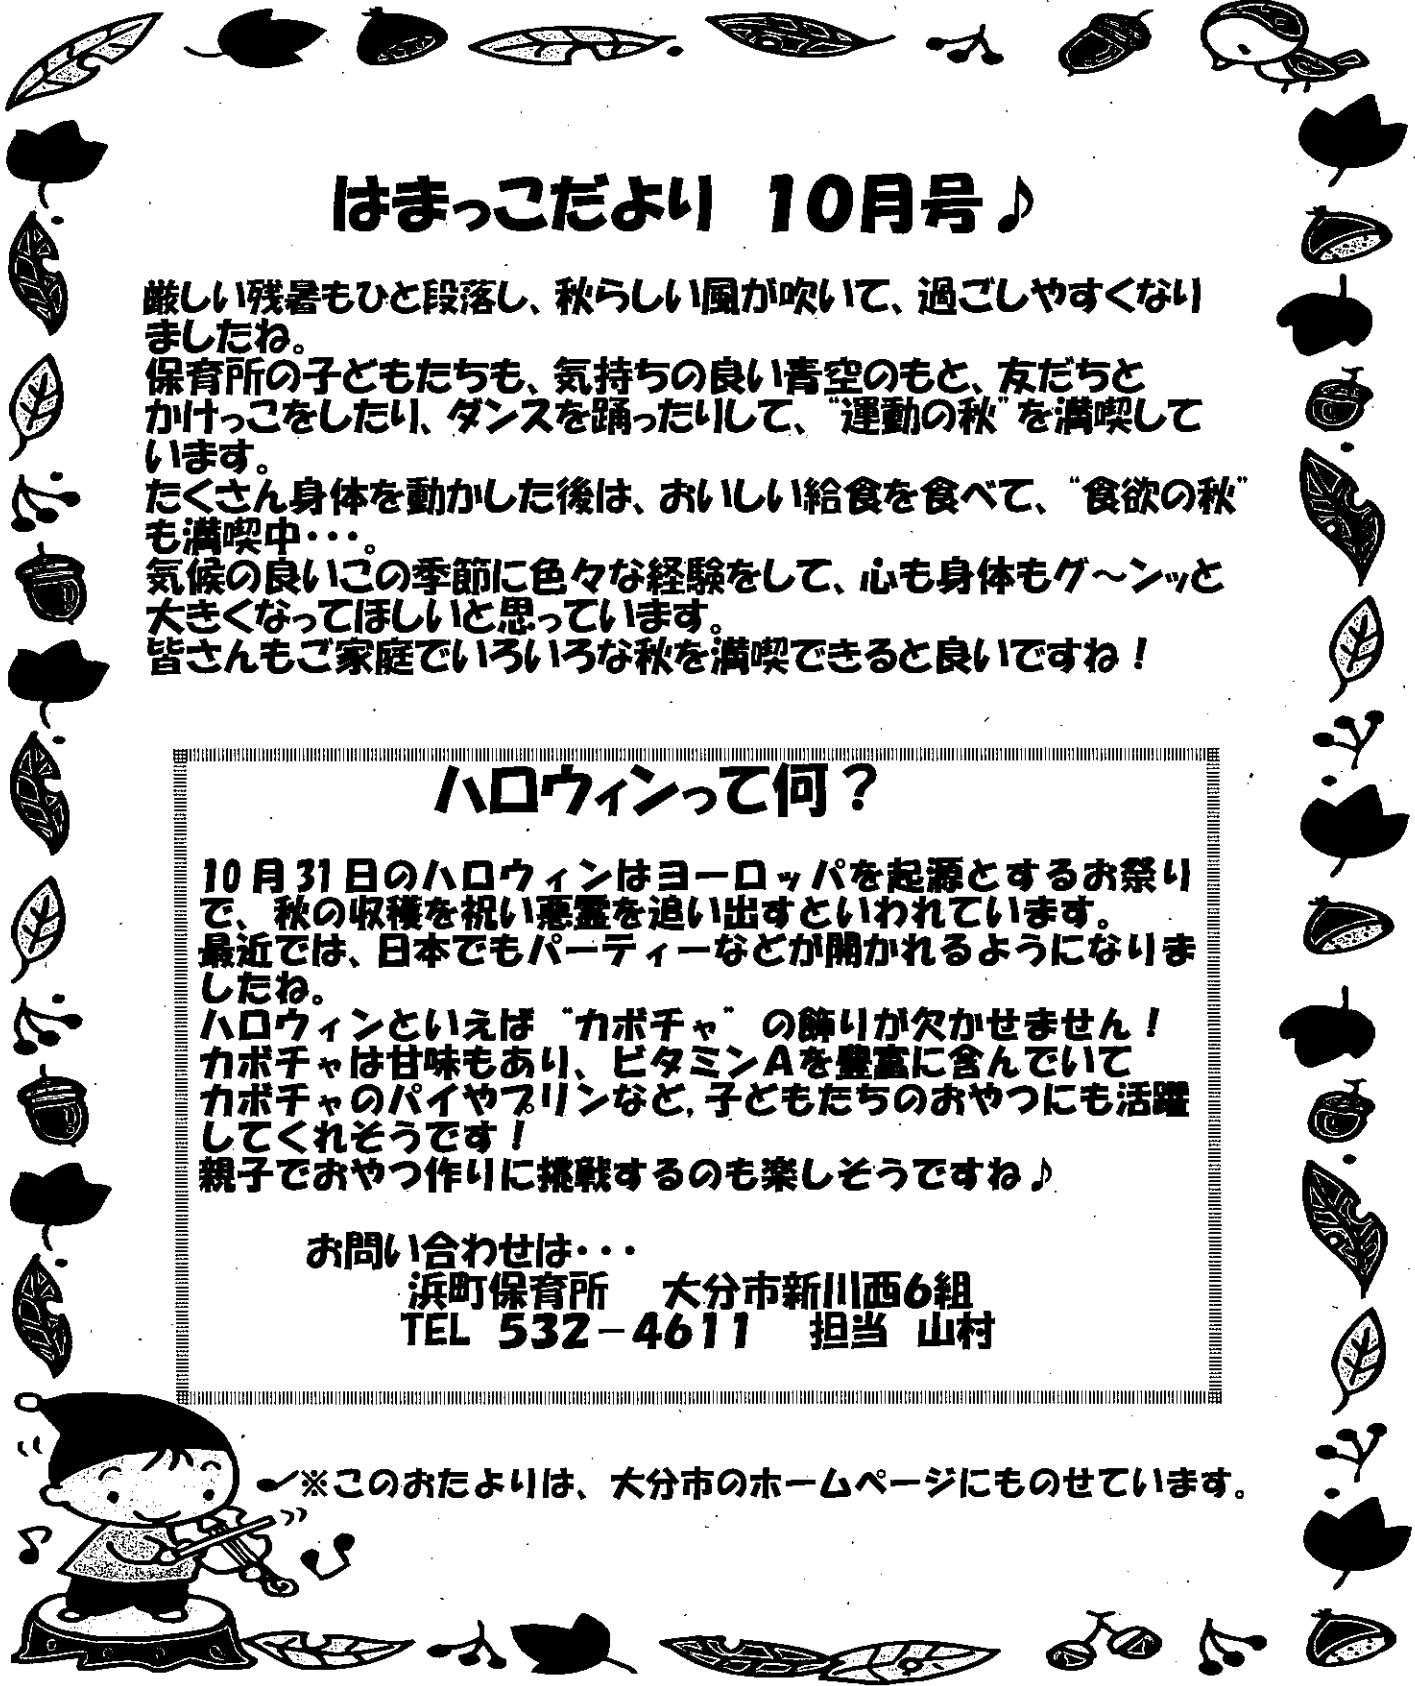 はまっこだより　10月号♪
厳しい残暑もひと段落し、秋らしい風が吹いて、過ごしやすくなり
ましたね。
保育所の子どもたちも、気持ちの良い青空のもと、友だちと
かけっこをしたり、ダンスを踊ったりして、“運動の秋”を満喫して
います。
たくさん身体を動かした後は、おいしい給食を食べて、“食欲の秋”
も満喫中・・・。
気候の良いこの季節に色々な経験をして、心も身体もグ～ンッと
大きくなってほしいと思っています。
皆さんもご家庭でいろいろな秋を満喫できると良いですね！
ハロウィンって何？
10月31日のハロウィンはヨーロッパを起源とするお祭り
で、秋の収穫を祝い悪霊を追い出すといわれています。
最近では、日本でもパーティーなどが開かれるようになりま
したね。
ハロウィンといえば“カボチャ”の飾りが欠かせません！
カボチャは甘味もあり、ビタミンAを豊富に含んでいて
カボチャのパイやプリンなど,子どもたちのおやつにも活躍
してくれそうです！
親子でおやつ作りに挑戦するのも楽しそうですね♪
お問い合わせは・・・
浜町保育所　大分市新川西6組
TEL 532－4611　担当 山村
※このおたよりは、大分市のホームページにものせています。